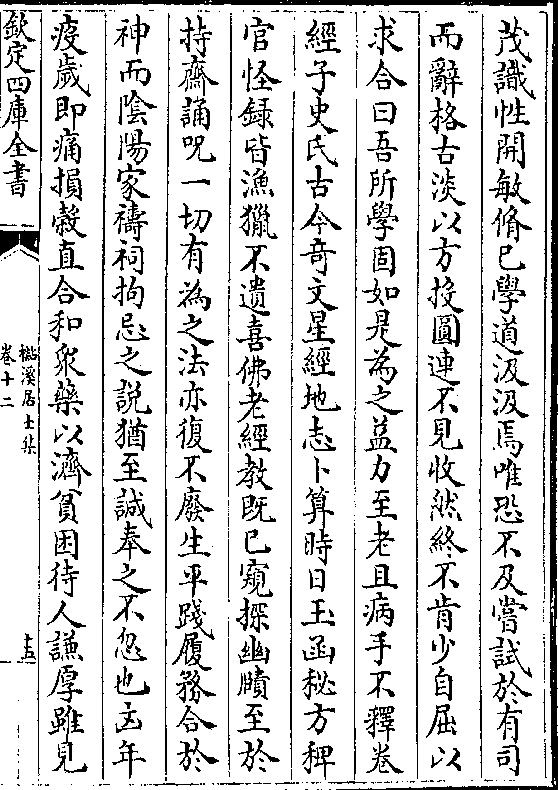 茂識性開敏脩已學道汲汲焉唯恐不及嘗試於有司
而辭格古淡以方投圓連不見收然終不肯少自屈以
求合曰吾所學固如是為之益力至老且病手不釋卷
經子史氏古今竒文星經地志卜算時日玉函秘方稗
官怪録皆漁獵不遺喜佛老經教既已窺探幽賾至於
持齋誦呪一切有為之法亦復不廢生平踐履務合於
神而陰陽家禱祠拘忌之說猶至誠奉之不忽也凶年
疫歲即痛損糓直合和衆藥以濟貧困待人謙厚雖見
欽定四庫全書
桐溪居士集
卷十二
十五